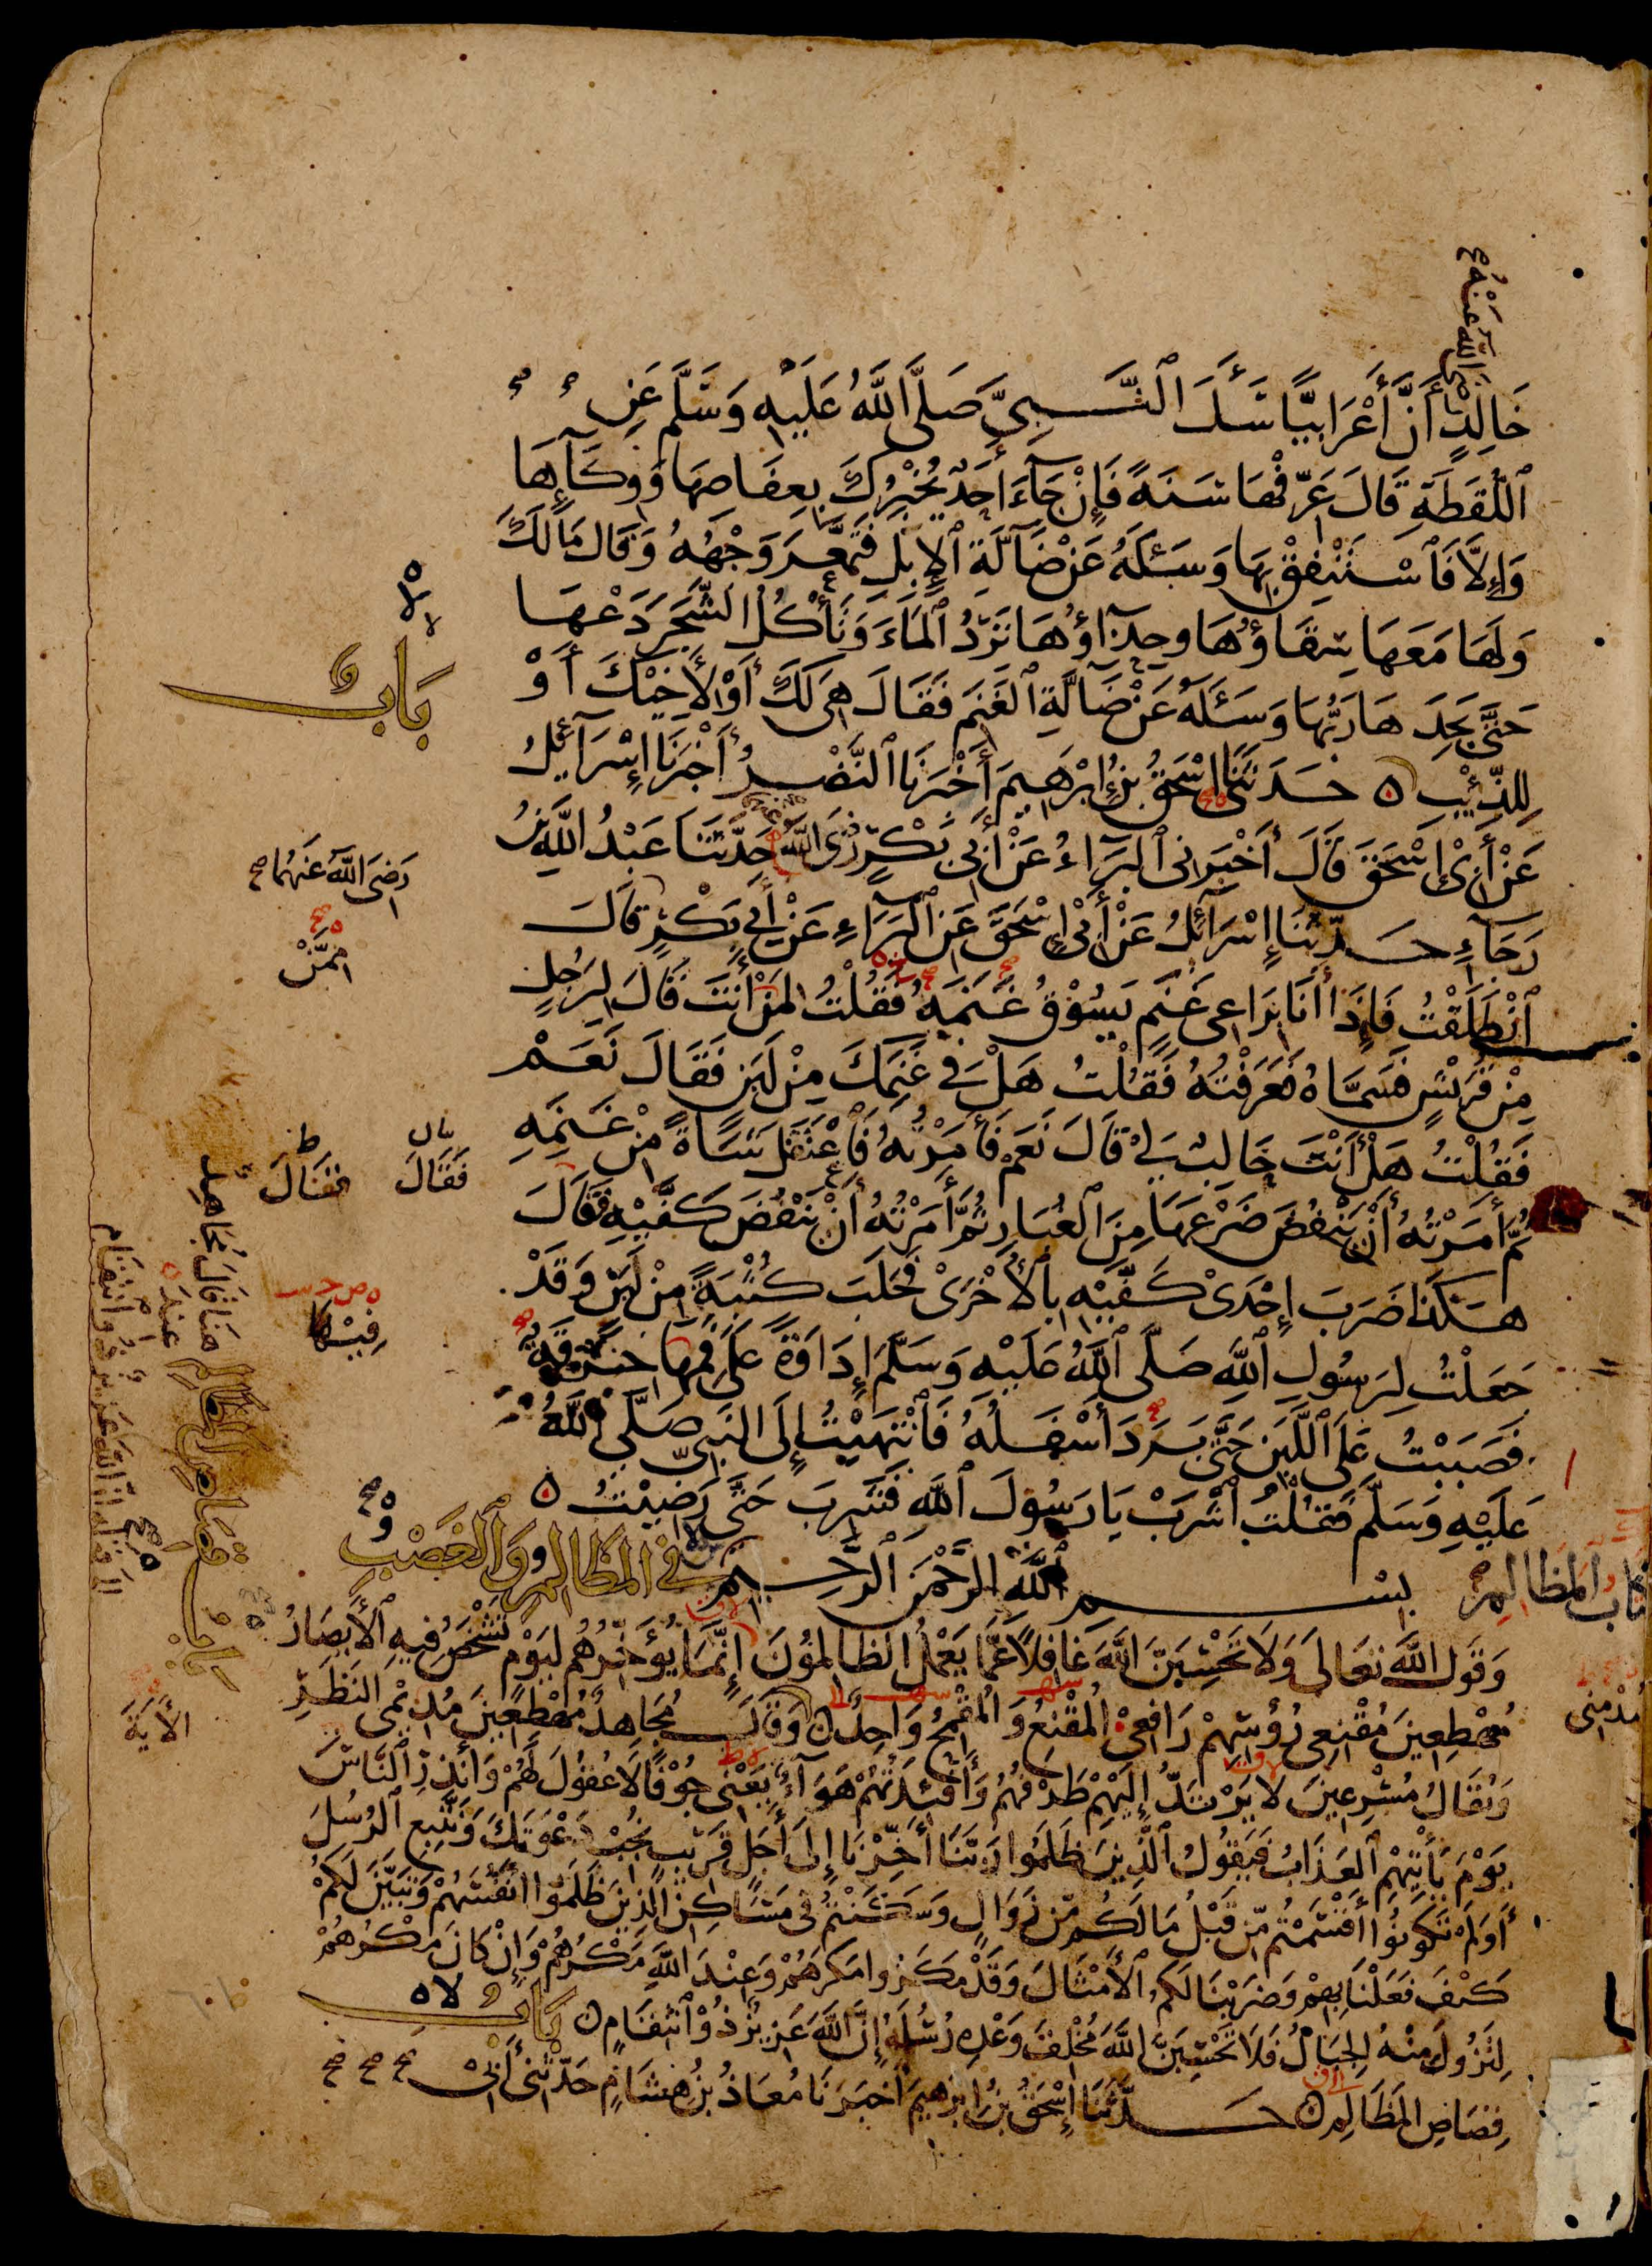 رضى الله عنه
خَالِدٍ أَنَّ أَعْرَابِيًّا سَأَلَ ٱلنَّبِيَّ صَلَّى اللهُ عَلَيْهِ وَسَلَّمَ عَنِ
ٱللُّقَطَةِ قَالَ عَرِّفْهَا سَنَةً فَإِنْ جَآءَ أَحَدٌ يُخْبِرُكَ بِعِفَاصِهَا وَوِكَآئِهَا
وَإِلَّا فَٱسْتَنْفِقْ بِهَا وَسَئَلَهُ عَنْ ضَآلَّةِ ٱلْإِبِلِ فَتَمَعَّرَ وَجْهُهُ وَقَالَ مَا لَكَ
وَلَهَا مَعَهَا سِقَاؤُهَا وَحِذَآؤُهَا تَرِدُ ٱلْمَاءَ وَتَأْكُلُ الشَّجَرَ دَعْهَا
حَتَّى يَجِدَهَا رَبُّهَا وَسَئَلَهُ عَنْ ضَآلَّةِ ٱلْغَنَمِ فَقَالَ هِىَ لَكَ أَوْ لِأَخِيْكَ أَوْ
لِلذِّئْبِ ٥ حَدَّثَنَا إِسْحَقُ بْنُ إِبْرَهِيمَ أَخْبَرَنَا ٱلنَّضْرُ أَخْبَرَنَا إِسْرَآئِيلُ
عَنْ أَبِىْ إِسْحَقَ قَالَ أَخْبَرَنِى ٱلْبَرَآءُ عَنْ أَبِى بَكْرٍ رَضِىَ اللهُ حَدَّثَنَا عَبْدُ اللهِ بْنُ
رَجَآءٍ حَدَّثَنَا إِسْرَآئِلُ عَنْ أَبِىْ إِسْحَقَ عَنِ ٱلْبَرَآءِ عَنْ أَبِى بَكْرٍ قَالَ
ٱنْطَلَقْتُ فَإِذَا أَنَا بِرَاعِى غَنَمٍ يَسُوْقُ غَنَمَهُ فَقُلْتُ لِمَنْ أَنْتَ قَالَ لِرَجُلٍ
مِنْ قُرَيْشٍ فَسَمَّاهُ فَعَرَفْتُهُ فَقُلْتُ هَلْ فِى غَنَمِكَ مِنْ لَبَنٍ فَقَالَ نَعَمْ
فَقُلْتُ هَلْ أَنْتَ حَالِبٌ لِىْ قَالَ نَعَمْ فَأَمَرْتُهُ فَٱعْتَقَلَ شَاةً مِنْ غَنَمِهِ
ثُمَّ أَمَرْتُهُ أَنْ يَنْفُضَ ضَرْعَهَا مِنَ ٱلْغُبَارِ ثُمَّ أَمَرْتُهُ أَنْ يَنْفُضَ كَفَّيْهِ فَقَالَ
هَكَذَا ضَرَبَ إِحْدَى كَفَّيْهِ بِٱلْأُخْرَىْ فَحَلَبَ كُثْبَةً مِنْ لَبَنٍ وَقَدْ
جَعَلْتُ لِرَسُولِ ٱللهِ صَلَّى ٱللهُ عَلَيْهِ وَسَلَّمَ إِدَاوَةً عَلَى فَمِهَا خِرْقَةٌ
فَصَبَبْتُ عَلَى ٱللَّبَنِ حَتَّى بَرَدَ أَسْفَلُهُ فَٱنْتَهَيْتُ إِلَى النَّبِىِّ صَلَّى اللهُ
عَلَيْهِ وَسَلَّمَ فَقُلْتُ ٱشْرَبْ يَا رَسُوْلَ ٱللهِ فَشَرِبَ حَتَّى رَضِيْتُ ٥
كِتَابُ الْمَظَالِمِ بِسْمِ ٱللهِ الرَّحْمَنِ الرَّحِيمِ فِى الْمَظَالِمِ وَٱلْغَصْبِ
وَقَوْلِ اللهِ تَعَالَى وَلَا تَحْسِبَنَّ اللهَ غَافِلًا عَمَّا يَعْمَلُ الظَّالِمُوْنَ إِنَّمَا يُؤَخِّرُهُمْ لِيَوْمٍ تَشْخَصُ فِيهِ ٱلْأَبْصَارُ
مُهْطِعِينَ مُقْنِعِى رُؤُسِهِمْ رَافِعِىْ الْمُقْنِعُ وَالْمُقْمِحُ وَاحِدٌ وَقَالَ مُجَاهِدٌ مُهْطِعِينَ مُدِيْمِى النَّظَرِ
وَيُقَالُ مُسْرِعِينَ لَا يَرْتَدُّ إِلَيْهِمْ طَرْفُهُمْ وَأَفْئِدَتُهُمْ هَوَآءٌ يَعْنِى جُوْفًا لَا عُقُوْلَ لَهُمْ وَأَنْذِرِ ٱلنَّاسَ
يَوْمَ يَأْتِيْهِمُ ٱلْعَذَابُ فَيَقُوْلُ ٱلَّذِينَ ظَلَمُوا رَبَّنَا أَخِّرْنَا إِلَى أَجَلٍ قَرِيْبٍ نُجِبْ دَعْوَتَكَ وَنَتَّبِعِ ٱلرُّسُلَ
أَوَلَمْ تَكُوْنُوْا أَقْسَمْتُمْ مِّنْ قَبْلُ مَا لَكُمْ مِّنْ زَوَالٍ وَسَكَنْتُمْ فِى مَسَاكِنِ الَّذِيْنَ ظَلَمُوْا أَنْفُسَهُمْ وَتَبَيَّنَ لَكُمْ
كَيْفَ فَعَلْنَا بِهِمْ وَضَرَبْنَا لَكُمُ ٱلْأَمْثَالَ وَقَدْ مَكَرُوا مَكْرَهُمْ وَعِنْدَ اللهِ مَكْرُهُمْ وَإِنْ كَانَ مَكْرُهُمْ
لِتَزُولَ مِنْهُ الْجِبَالُ فَلَا تَحْسِبَنَّ اللهَ مُخْلِفَ وَعْدِهِ رُسُلَهُ إِنَّ اللهَ عَزِيزٌ ذُوْ ٱنْتِقَامٍ ٥ بَابُ
قِصَاصِ الْمَظَالِمِ ٥ حَدَّثَنَا إِسْحَقُ بْنُ إِبْرَهِيمَ أَخْبَرَنَا مُعَاذُ بْنُ هِشَامٍ حَدَّثَنِى أَبِىْ
بَابٌ
رَضِىَ اللهُ عَنْهُمَا
مِمَّنْ
فَقَالَ
فَقَالَ
هنا قَالَ مُجَاهِدٌ
عِنْدَ
باب قصاص المظالم
الى قوله ان الله عَزِيزٌ ذُو انْتِقَام
الْأَيَةَ
مُدْمِنِى